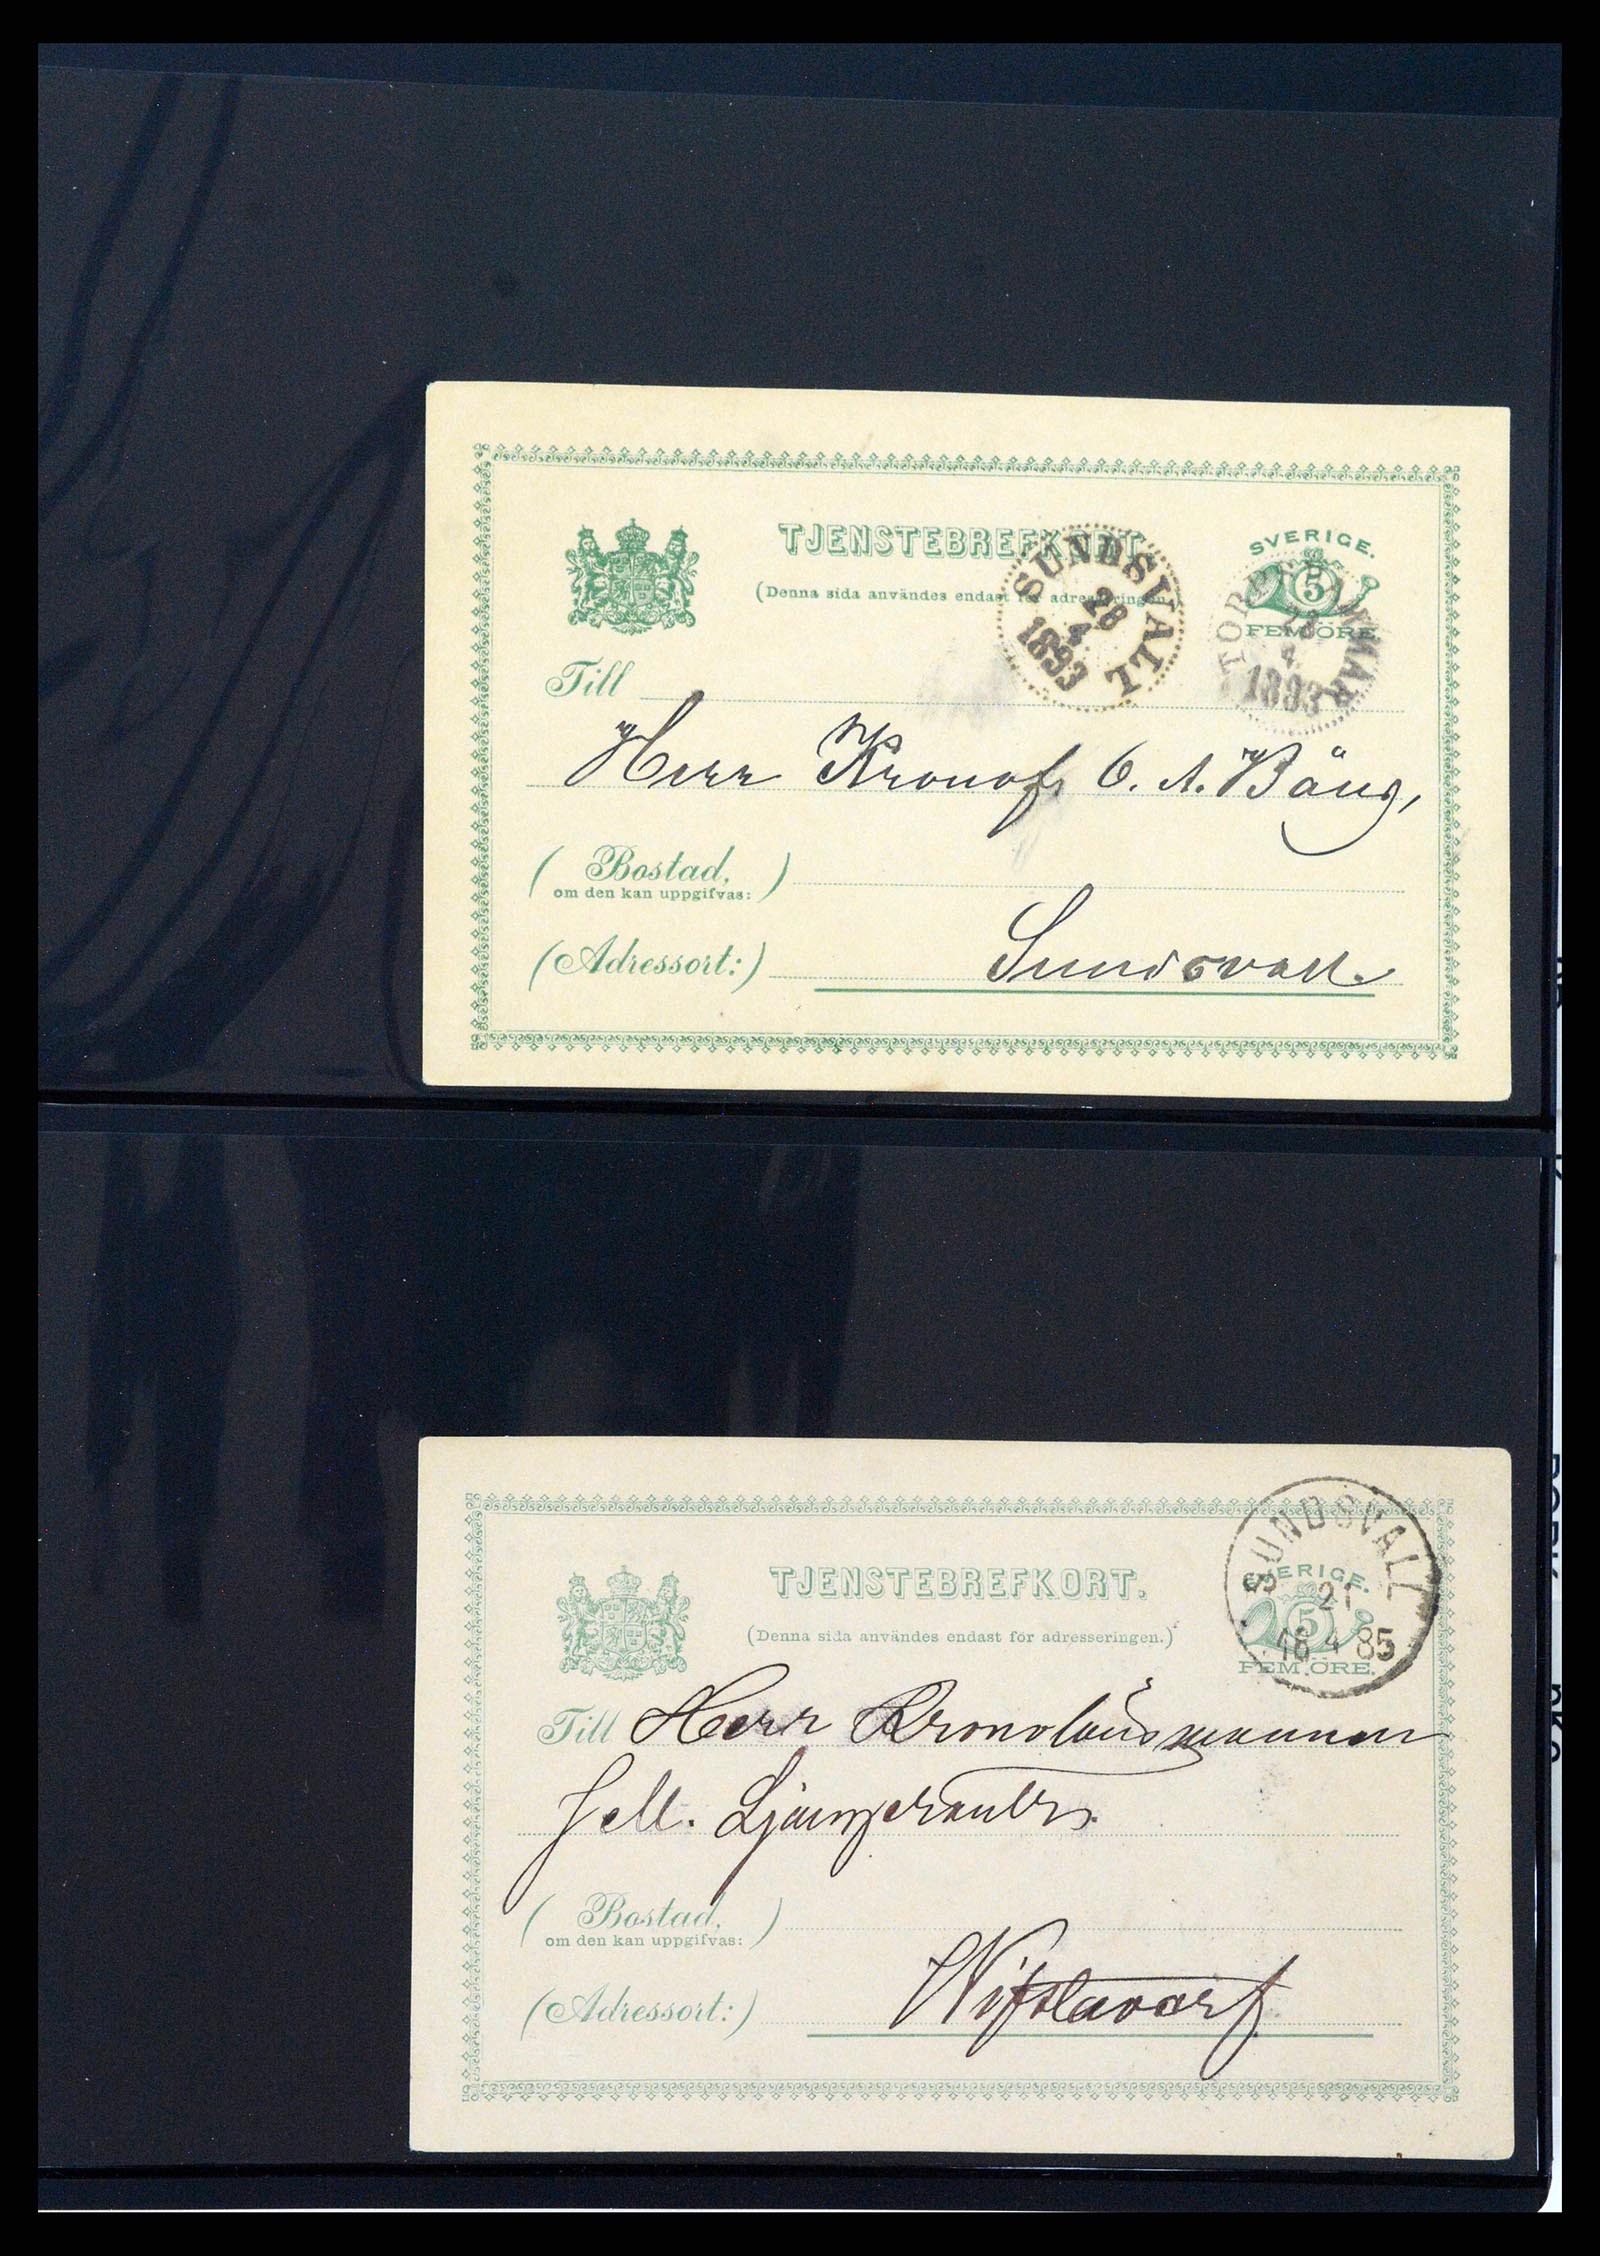 TJENSTEBREFKORT.
(Denna sida användes endast för adresseringen.)
SVERIGE.
5
FEM ÖRE.
SUNDSVALL
28
4
1893
4
1893
Till
Herr Kronof. C. A. Bäng,
(Bostad,
om den kan uppgifvas:)
(Adressort:) Sundsvall.
TJENSTEBREFKORT.
(Denna sida användes endast för adresseringen.)
SVERIGE.
5
FEM ÖRE.
SUNDSVALL
21
16 4 85
Till Herr Kronolänsmannen
(Bostad,
om den kan uppgifvas:)
(Adressort:) Wifstavarf